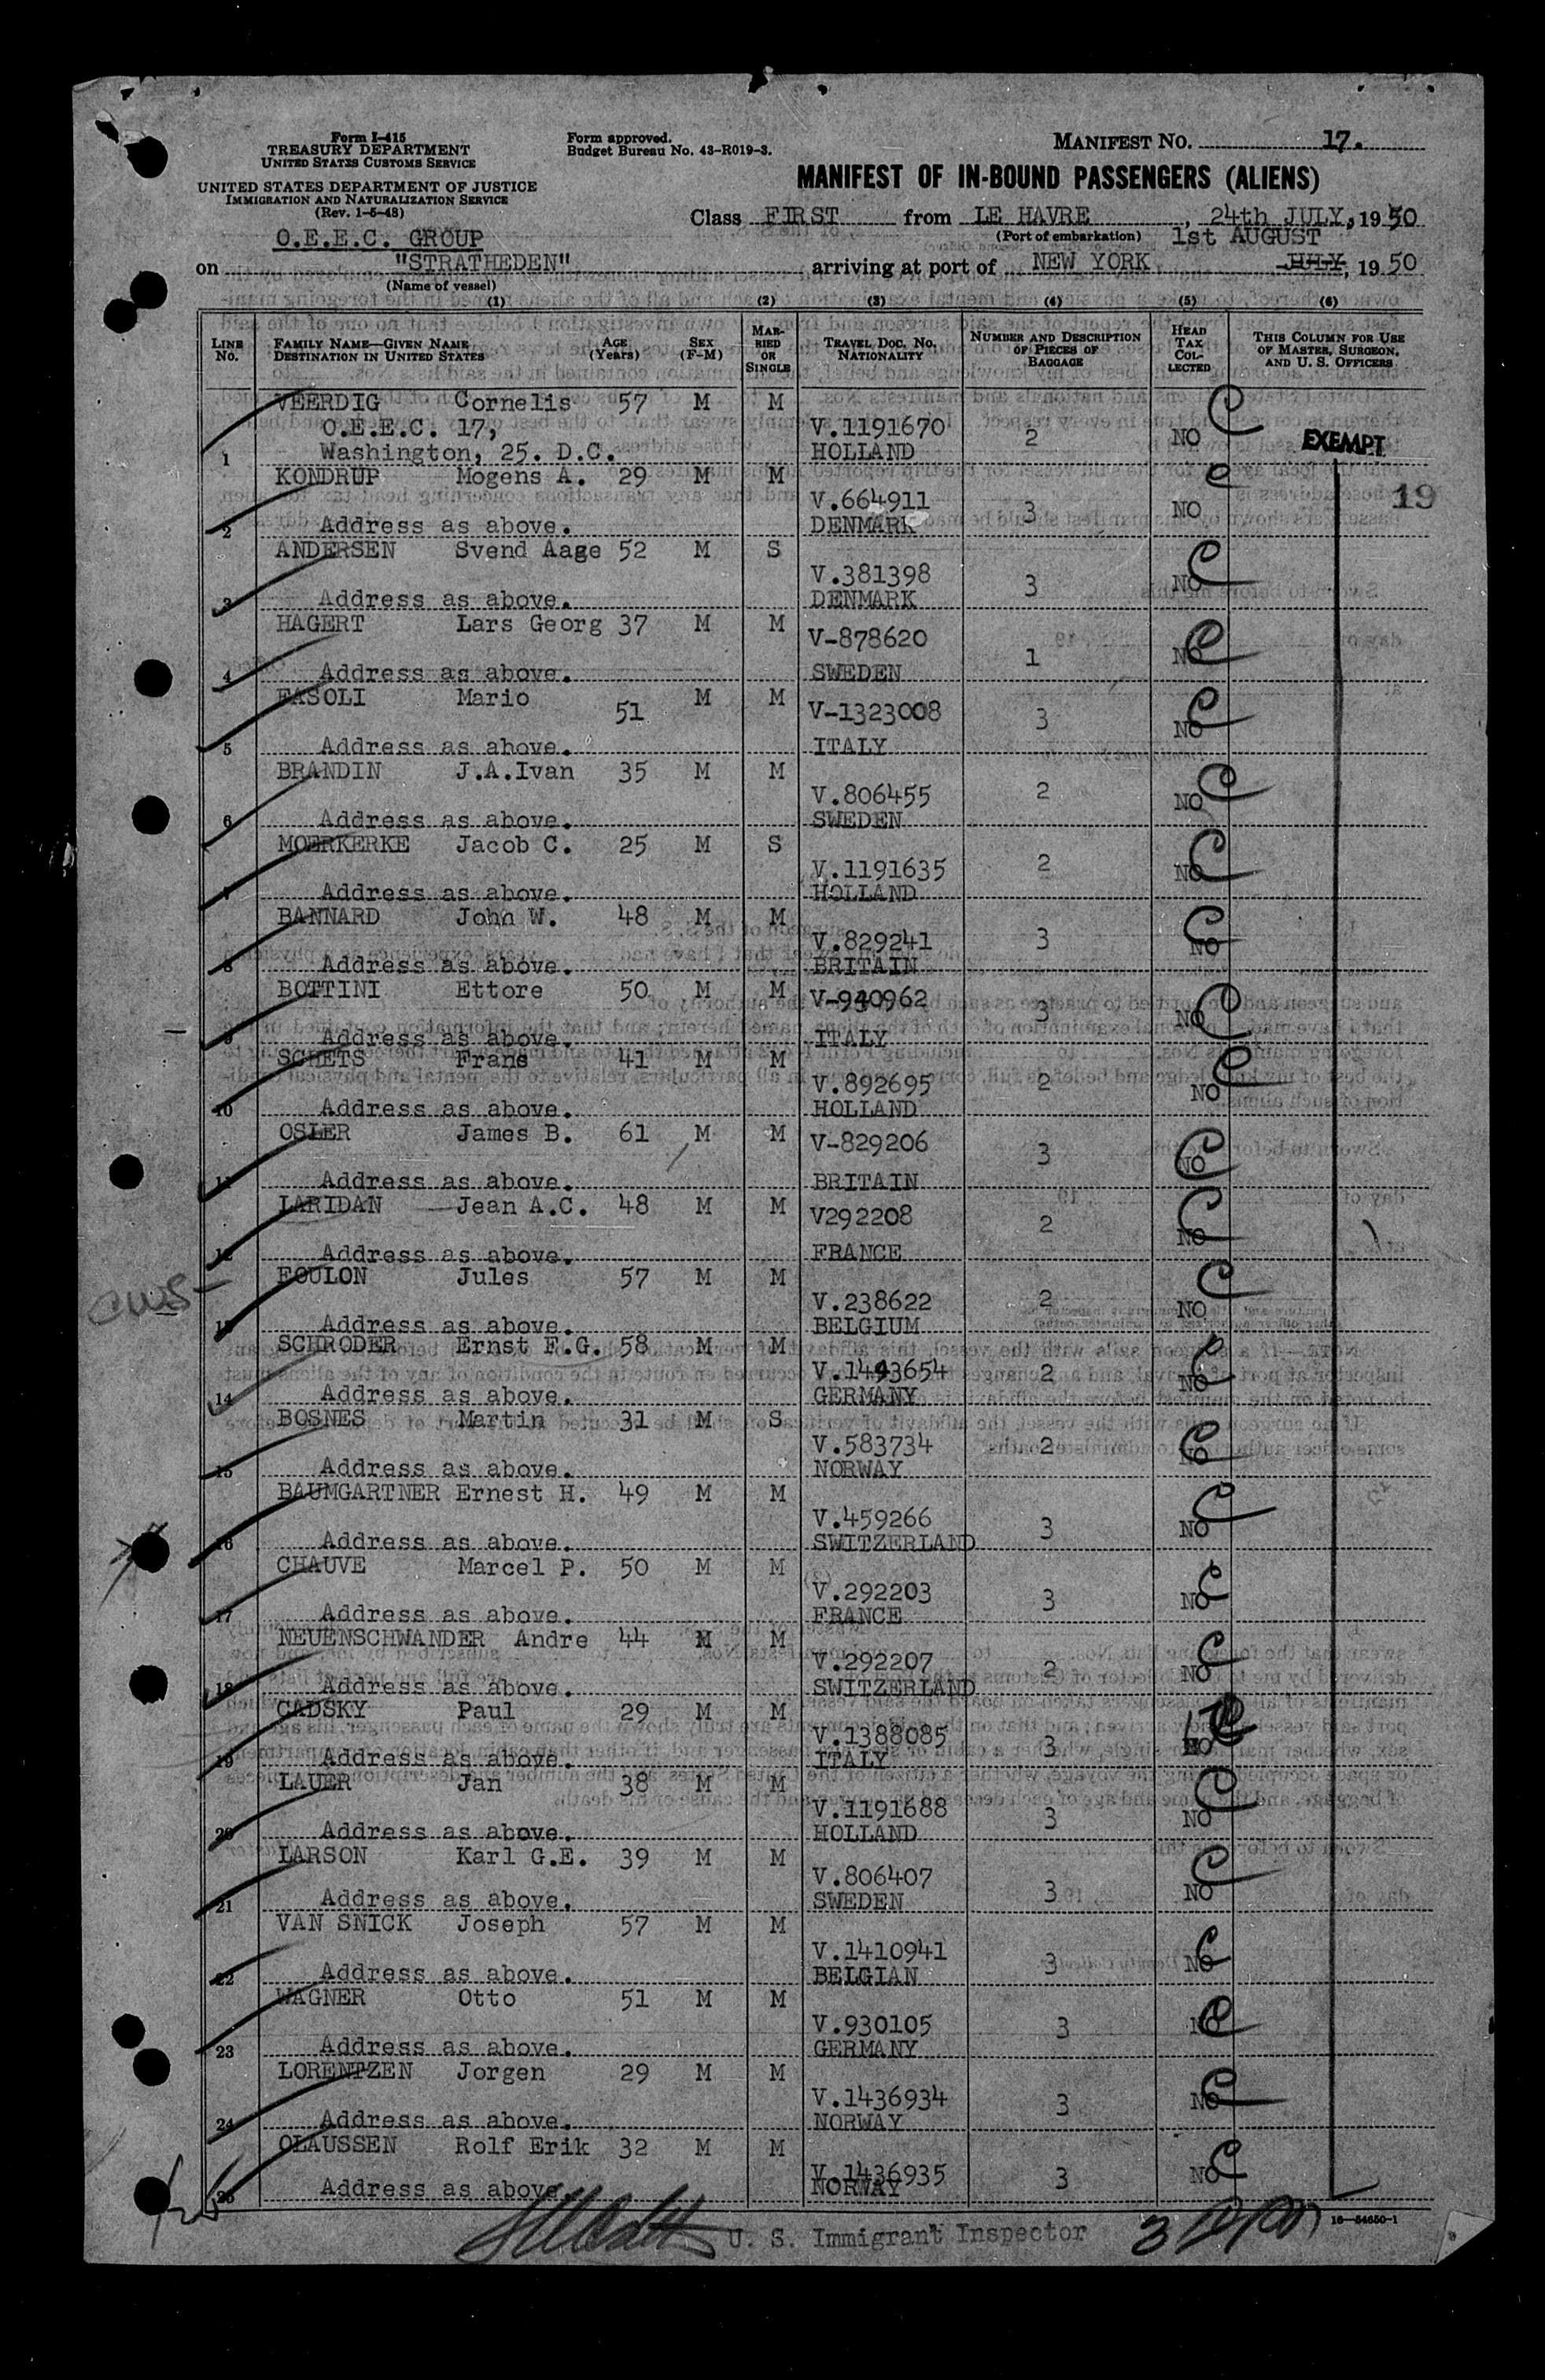 Form I-415
TREASURY DEPARTMENT
UNITED STATES CUSTOMS SERVICE
UNITED STATES DEPARTMENT OF JUSTICE
IMMIGRATION AND NATURALIZATION SERVICE
(Rev. 1-5-48)
Form approved.
Budget Bureau No. 43-R019-3.
MANIFEST NO. 17.
MANIFEST OF IN-BOUND PASSENGERS (ALIENS)
Class FIRST from LE HAVRE, 24th JULY, 1950
(Port of embarkation)
O.E.E.C. GROUP
1st AUGUST
on "STRATHEDEN" arriving at port of NEW YORK JULY, 1950
(Name of vessel)
(1) (2) (3) (4) (5) (6)
LINE No. FAMILY NAME—GIVEN NAME DESTINATION IN UNITED STATES AGE (Years) SEX (F-M) MARRIED OR SINGLE TRAVEL DOC. NO. NATIONALITY NUMBER AND DESCRIPTION OF PIECES OF BAGGAGE HEAD TAX COLLECTED THIS COLUMN FOR USE OF MASTER, SURGEON, AND U. S. OFFICERS
VEERDIG Cornelis 57 M M C
O.E.E.C. 17, V.1191670 2 NO EXEMPT
1 Washington, 25. D.C. HOLLAND
KONDRUP Mogens A. 29 M M C
V.664911 3 NO 19
2 Address as above. DENMARK
ANDERSEN Svend Aage 52 M S C
V.381398 3 NO
3 Address as above. DENMARK
HAGERT Lars Georg 37 M M C
V-878620 1 NO
4 Address as above. SWEDEN
FASOLI Mario 51 M M C
V-1323008 3 NO
5 Address as above. ITALY
BRANDIN J.A.Ivan 35 M M C
V.806455 2 NO
6 Address as above. SWEDEN
MOERKERKE Jacob C. 25 M S C
V.1191635 2 NO
7 Address as above. HOLLAND
BANNARD John W. 48 M M C
V.829241 3 NO
8 Address as above. BRITAIN
BOTTINI Ettore 50 M M C
V-940962 3 NO
9 Address as above. ITALY
SCHETS Frans 41 M M C
V.892695 2 NO
10 Address as above. HOLLAND
OSLER James B. 61 M M C
V-829206 3 NO
11 Address as above. BRITAIN
LARIDAN Jean A.C. 48 M M C
V292208 2 NO
12 Address as above. FRANCE
FOULON Jules 57 M M C
V.238622 2 NO
13 Address as above. BELGIUM
SCHRODER Ernst F.G. 58 M M C
V.1493654 2 NO
14 Address as above. GERMANY
BOSNES Martin 31 M S C
V.583734 2 NO
15 Address as above. NORWAY
BAUMGARTNER Ernest H. 49 M M C
V.459266 3 NO
16 Address as above. SWITZERLAND
CHAUVE Marcel P. 50 M M C
V.292203 3 NO
17 Address as above. FRANCE
NEUENSCHWANDER Andre 44 M M C
V.292207 2 NO
18 Address as above. SWITZERLAND
CADSKY Paul 29 M M C
V.1388085 3 NO
19 Address as above. ITALY
LAUER Jan 38 M M C
V.1191688 3 NO
20 Address as above. HOLLAND
LARSON Karl G.E. 39 M M C
V.806407 3 NO
21 Address as above. SWEDEN
VAN SNICK Joseph 57 M M C
V.1410941 3 NO
22 Address as above. BELGIAN
WAGNER Otto 51 M M C
V.930105 3 NO
23 Address as above. GERMANY
LORENTZEN Jorgen 29 M M C
V.1436934 3 NO
24 Address as above. NORWAY
OLAUSSEN Rolf Erik 32 M M C
V.1436935 3 NO
25 Address as above. NORWAY
U. S. Immigrant Inspector
16—54650-1